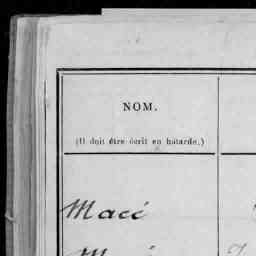 NOM.
(Il doit être écrit en bâtarde.)
Macé